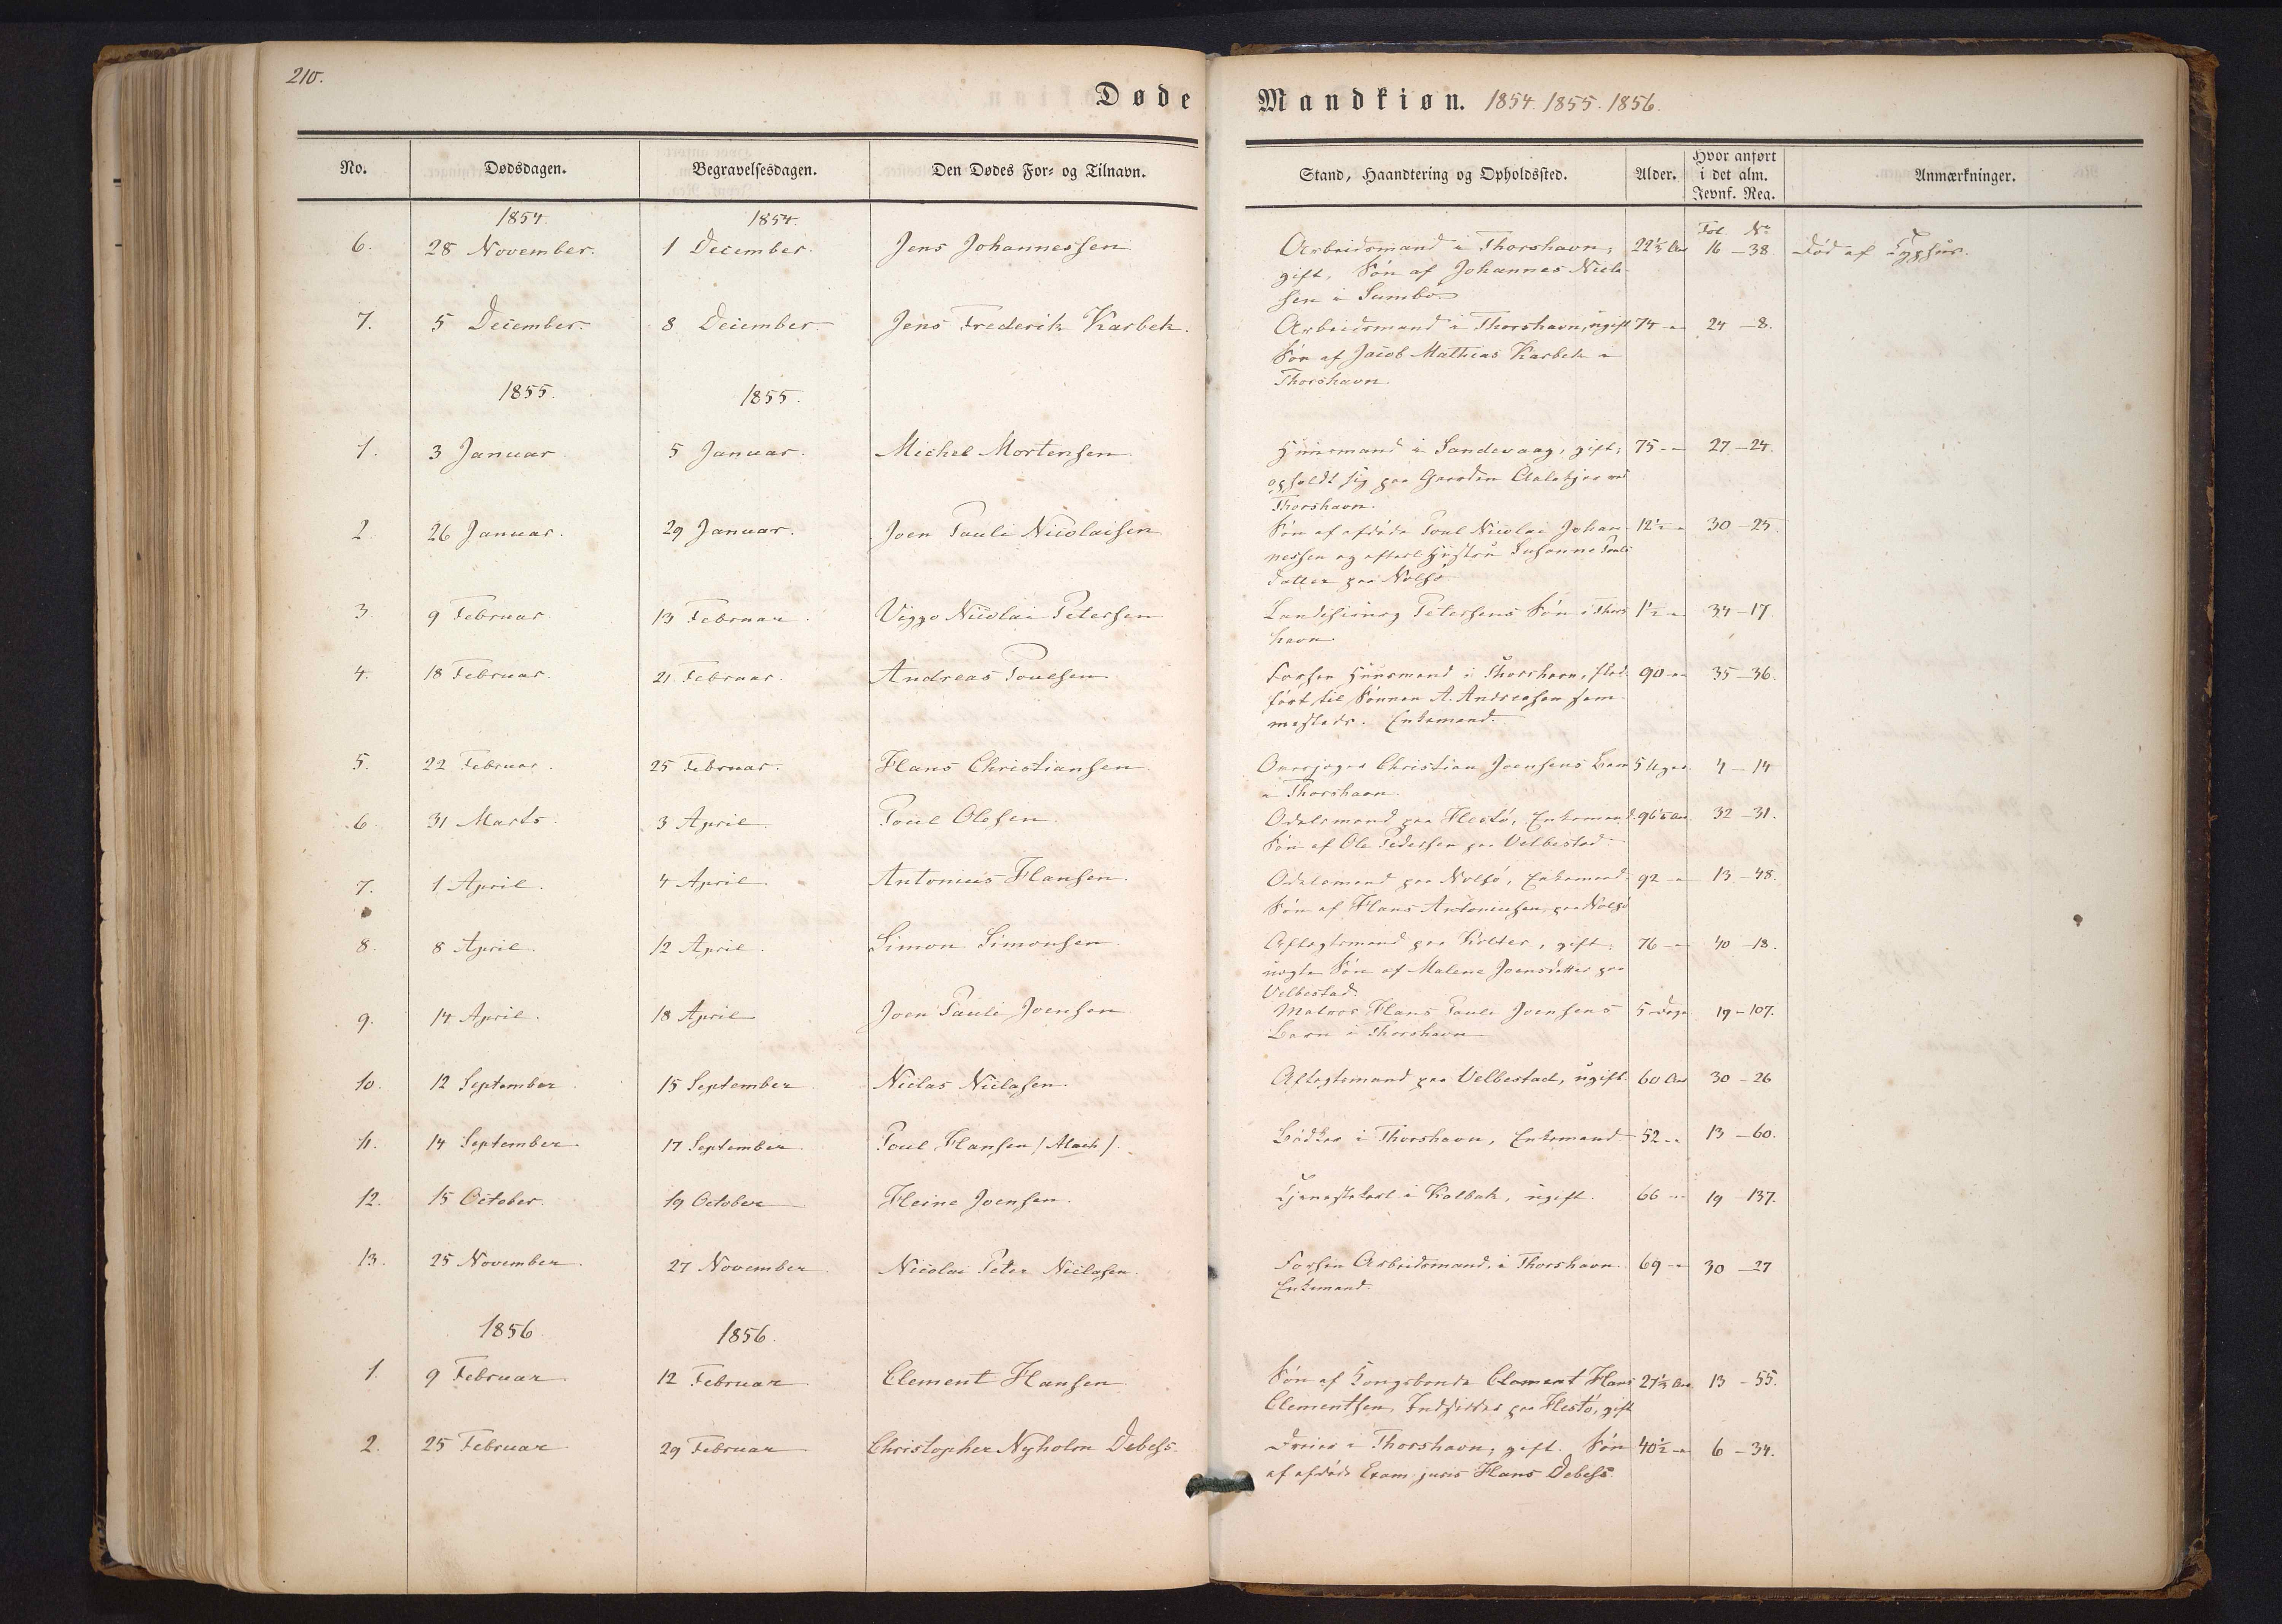 210.
Døde Mandkiøn. 1854. 1855. 1856.
No. Dødsdagen. Begravelsesdagen. Den Dødes For- og Tilnavn. Stand, Haandtering og Opholdssted. Alder. Hvor anført i det alm. Jevnf. Reg. Anmærkninger.
1854. 1854. Fol. No
6. 28 November. 1 December. Jens Johannessen Arbeidsmand i Thorshavn, 22½ Aar 16 – 38 Død af Typhus.
gift, Søn af Johannes Niel-
sen i Sumbø
7. 5 December. 8 December Jens Frederik Karbek. Arbeidsmand i Thorshavn, ugift 74 – 24 – 8.
Søn af Jacob Mathias Karbek i
Thorshavn.
1855. 1855.
1. 3 Januar 5 Januar. Michel Mortensen Huusmand i Sandevaag, gift, 75 – 27 – 24.
opholdt sig paa Gaarden ved
Thorshavn.
2. 26 Januar. 29 Januar. Joen Pauli Nicolaisen Søn af afdøde Poul Nicolai Johan- 12½ – 30 – 25.
nessen og efterl Hustru Susanne Pouls
datter paa Nolsø
3. 9 Februar 13 Februar. Viggo Nicolai Petersen Petersens Søn i Thors 1½ – 34 – 17.
havn
4. 18 Februar. 21 Februar. Andreas Poulsen. Forhen Huusmand i Thorshavn, 90 – 35 – 36.
til Sønnen A. Andreasen sam-
mesteds. Enkemand.
5. 22 Februar. 25 Februar. Hans Christiansen Christian Joensens Barn 5 Uger 4 – 14
i Thorshavn.
6 31 Marts. 3 April. Poul Olesen Odelsmand paa Hestø, Enkemand. 96½ Aar. 32 – 31.
Søn af Ole Pedersen paa Velbestad
7. 1 April. 4 April. Antonius Hansen. Odelsmand paa Nolsø, Enkemand 92 – 13 – 48.
Søn af Hans Antoniusen paa Nolsø
8. 8 April. 12 April. Simon Simonsen Aftægtsmand paa Kolter, gift, 76 – 40 – 18.
uægte Søn af Malene Joensdatter paa
Velbestad.
9. 14 April. 18 April Joen Pauli Joensen Matros Hans Pauli Joensens 5 Dage 19 – 107.
Barn i Thorshavn
10. 12 September 15 September Niclas Niclasen Aftægtsmand paa Velbestad, ugift. 60 Aar 30 – 26
11. 14 September 17 September Poul Hansen / Mack /. Bødker i Thorshavn, Enkemand 52 – 13 – 60.
12. 15 October. 19 October Heine Joensen. Tjenestekarl i Kalbak, ugift. 66 – 19 – 137.
13. 25 November. 27 November Nicolai Peter Niclasen. Forhen Arbeidsmand i Thorshavn. 69 – 30 – 27
Enkemand.
1856 1856.
1. 9 Februar 12 Februar Clement Hansen Søn af Kongsbonde Clement Hans 27½ Aar 13 – 55.
Clementsen, Indsidder paa Hestø, gift
2. 25 Februar 29 Februar Christopher Nyholm Debess. Dreier i Thorshavn, gift. Søn 40½ – 6 – 34.
af afdøde Exam. juris Hans Debess